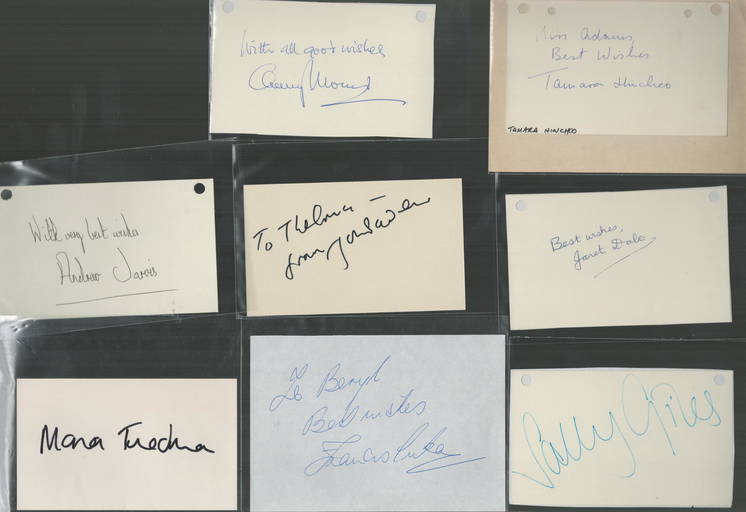 With all good wishes
Miss Adams,
Best Wishes
Tamara Hinchco
TAMARA HINCHCO
With very best wishes
Andrew Jarvis
To Thelma —
from
Best wishes,
Janet Dale
To Beryl
Best wishes
Francis
Sally Giles